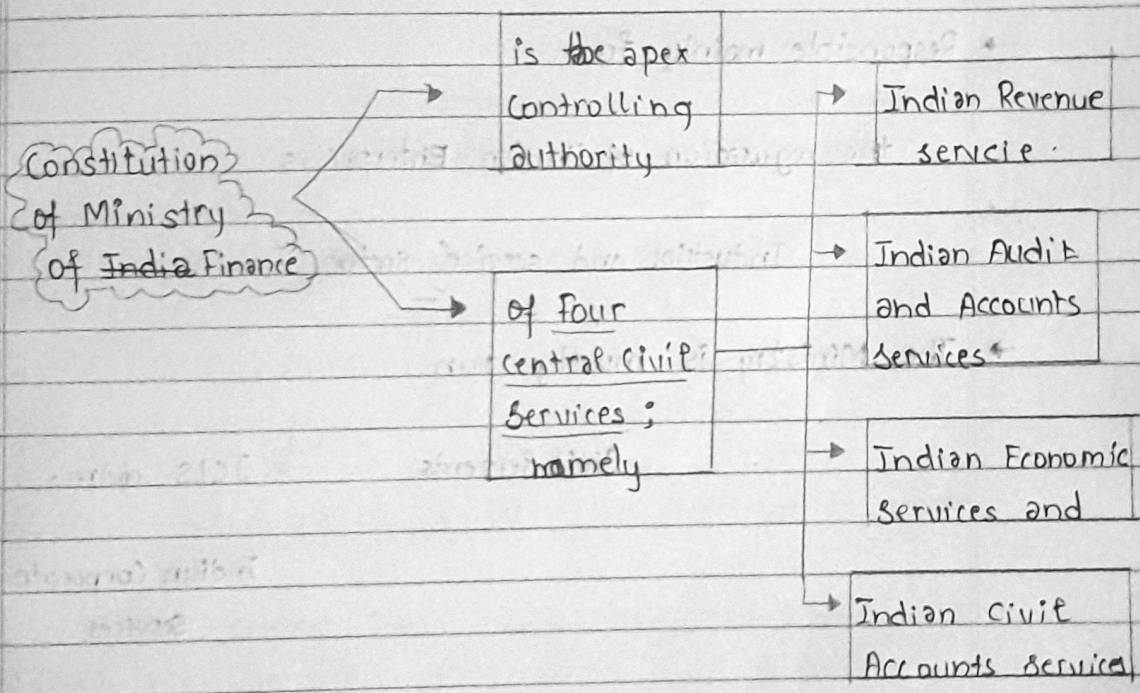 Constitution
of Ministry
of India Finance
is the apex
controlling
authority
of four
central civil
services ;
namely
Indian Revenue
servcie .
Indian Audit
and Accounts
services.
Indian Economic
services and
Indian civil
Accounts services